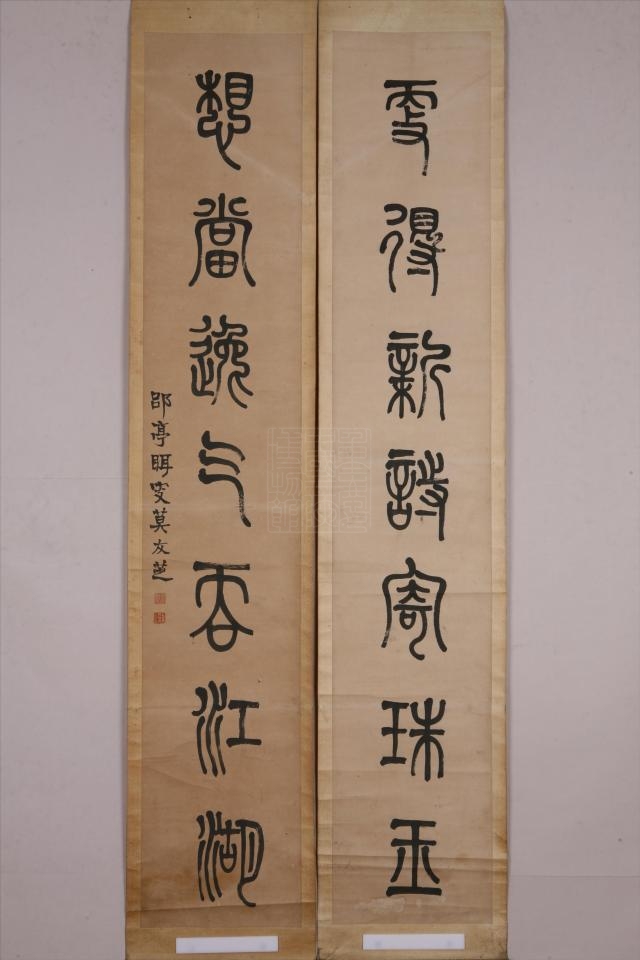 更得新詩寄珠玉
想當逸气吞江湖
郘亭眲叟莫友芝